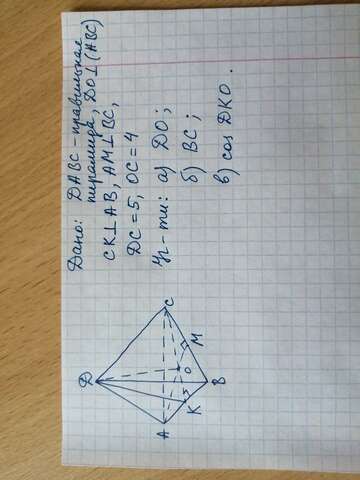 Дано: DABC - правильная
пирамида, DO⊥(ABC)
CK⊥AB, AM⊥BC,
DC=5, OC=4
а) DO;
б) BC;
в) cos DKO.
D
C
A
O
M
K
B